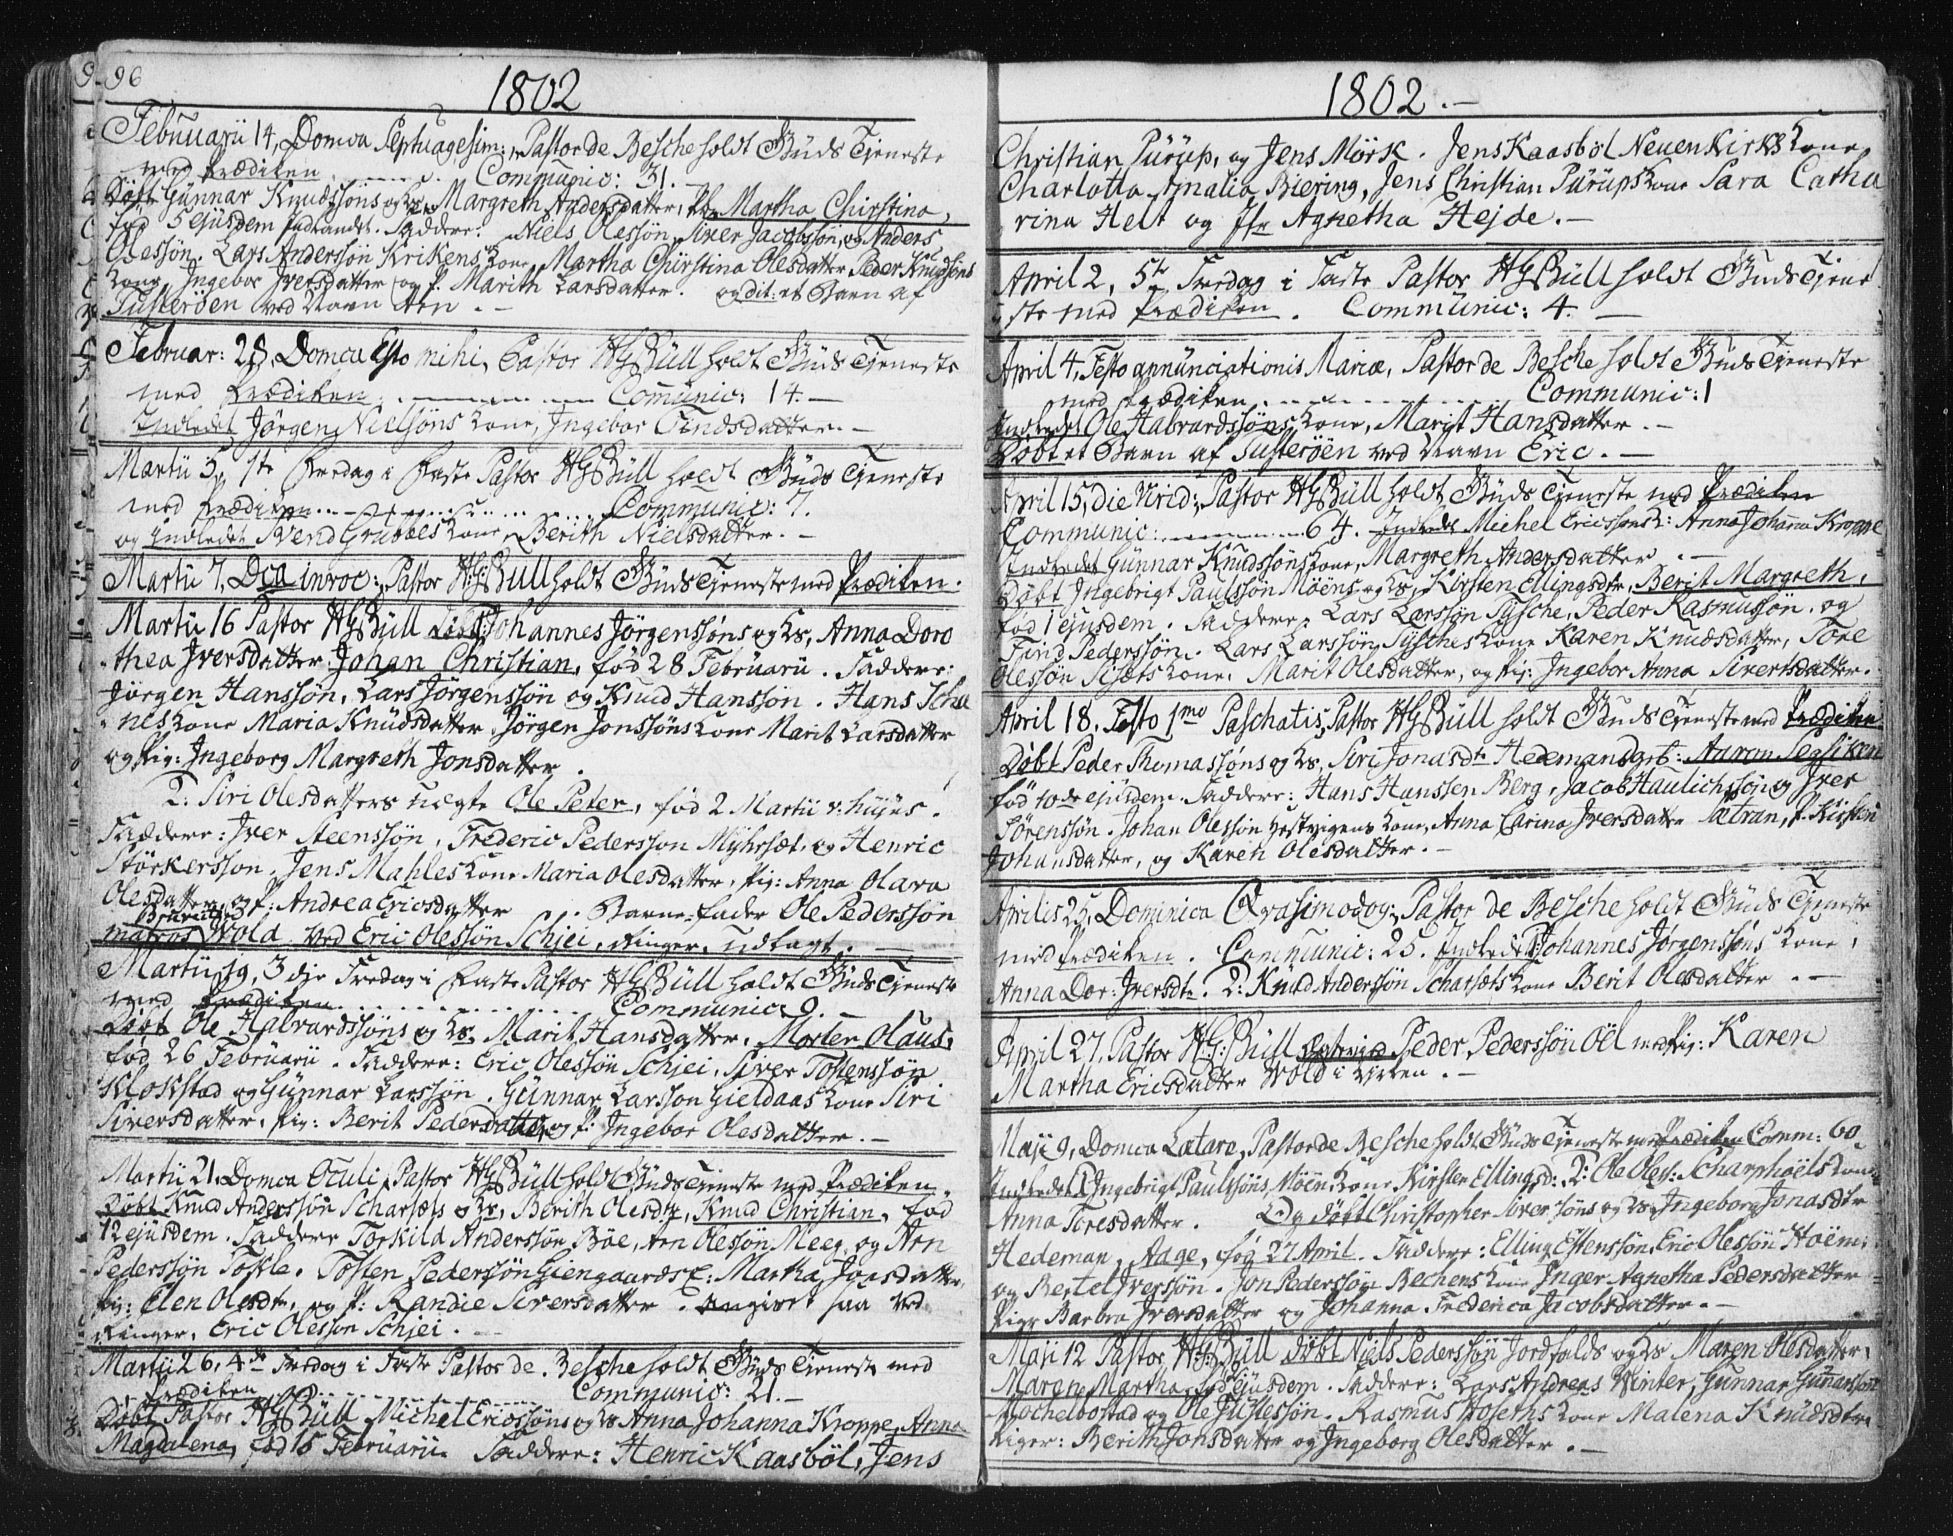 96
1802
Februarii 14, Domca Septuagesim:, Pastor de Besche holdt Guds Tjeneste
med Prædiken. Communic: 31.
Døbt Gunnar Knudssøns og Hs. Margreth Andersdatter, Martha Chirstina,
fød 5 ejusdem Faddere: Niels Olessøn, Siver Jacobssøn, og Anders
Olessøn. Lars Anderssøn Krikens Kone Martha Chirstina Olesdatter, Peder Knudsøns
Kone Ingebor Iversdatter og P. Marith Larsdatter. og dit: et Barn af
Tusterøen ved Navn Aen.
Februar: 28, Domca Esto mihi, Pastor HG Büll holdt Guds Tjeneste
med Prædiken. Comunic: 14.
Indledet Jørgen Nielsøns Kone, Ingebor Findsdatter.
Martii 5, 1ste Fredag i Faste Pastor HG Büll holdt Guds Tjeneste
med Prædiken Communic: 7.
og Indledet Svend Grubbes Kone, Berith Nielsdatter.
Martii 7, Dca invoc:, Pastor H:G: Büll holdt Guds Tjeneste med Prædiken.
Martii 16 Pastor HG Büll døbt 1: Johannes Jørgenssøns og Hs. Anna Doro
thea Iversdatter Johan Christian, fød 28 Februarii. Faddere:
Jørgen Hanssøn, Lars Jørgenssøn og Knud Hanssøn. Hans Scha
nes Kone Maria Knudsdatter, Jørgen Jonssøns Kone Marit Larsdatter
og Pig: Ingeborg Margreth Jonsdatter.
2: Siri Olesdatters uægte Ole Peter, fød 2 Martii v: hujus.
Faddere: Iver Steenssøn, Frederic Pederssøn Myhrsæt, og Henric
Størkerssøn. Jens Mahles Kone Maria Olesdatter, Pig: Anna Olava
Olesdatter, og P: Andrea Ericsdatter. Barne-fader Ole Pederssøn
matros Wold ved Eric Olessøn Schjei, Ringer, udlagt.
Martii 19, 3die Fredag i Faste Pastor HG Büll holdt Guds Tjeneste
med Prædiken Communic: 9.
Døbt Ole Halvardssøns og Hs. Marit Hansdatter, Morten Olaus,
fød 26 Februarii. Faddere: Eric Olessøn Schjei, Siver Tostenssøn
Klokstad og Gunnar Larssøn. Gunnar Larssøn Gieldaas Kone Siri
Siversdatter, Pig: Berit Pedersdatter og P: Ingebor Olesdatter.
Martii 21, Domca Oculi, Pastor HG Büll holdt Guds Tjeneste med Prædiken.
Døbt Knud Anderssøn Scharsæts og Hs. Berith Olesdtr, Knud Christian, fød
12 ejusdem. Faddere Torkild Anderssøn Böe, Aen Olessøn Meeg, og Aen
Pederssøn Tostle. Tosten Pederssøn Giengaards K: Martha Joasdatter,
Pig: Elen Olesdtr, og P: Randie Siversdatter. angivet saa ved
Ringer, Eric Olessøn Schjei.
Martii 26, 4de Fredag i Faste Pastor de Besche holdt Guds Tjeneste med
Prædiken Communic: 21.
Døbt Pastor HG Büll Michel Ericssøns og Hs Anna Johanna Kroppe, Anna
Magdalena, fød 15 Februarii. Faddere: Henric Kaasböl, Jens
1802.
Christian Pürup, og Jens Mörk. Jens Kaasböl Neuenkirks Kone
Charlotta Amalia Biering, Jens Christian Pürups Kone Sara Catha
rina Helt og Jfr Agnetha Hejde.
April 2, 5te Fredag i Faste Pastor HG Büll holdt Guds Tjene
ste med Prædiken. Communic: 4.
April 4, Festo annunciationis Mariæ, Pastor de Besche holdt Guds Tjeneste
med Prædiken Communic: 1
Indledet Ole Halvardssøns Kone, Marit Hansdatter.
Døbt et Barn af Tusterøen ved Navn Eric.
April 15, die Virid:, Pastor HG Büll holdt Guds Tjeneste med Prædiken
Communic: 64. Indledt Michel Ericssøns K: Anna Johanna Kroppe
Indledet Gunnar Knudssøns Kone, Margreth Andersdatter.
Døbt Ingebrigt Paulssøn Möens og Hs. Kirsten Ellingsdtr, Berit Margreth,
fød 1 ejusdem. Faddere: Lars Larssøn Sysche, Peder Rasmussøn, og
Find Pederssøn. Lars Larssøn Sysches Kone Karen Knudsdatter, Tore
Olessøn Kone Marit Olesdatter, og Pig: Ingebor Anna Sivertsdatter.
April 18. Festo 1mo Paschatis, Pastor HG Büll holdt Guds Tjeneste med Prædiken
Døbt Peder Thomassøns og Hs. Siri Jonasdtr Hedemands
fød 10de ejusdem. Faddere: Hans Hanssen Berg, Jacob Haulichssøn og Iver
Sørenssøn. Johan Olessøn Kone, Anna Carina Iversdatter P. Kirsten
Johansdatter, og Karen Olesdatter.
Aprilis 25, Dominica Qvasimodog:, Pastor de Besche holdt Guds Tjeneste
med Prædiken. Communic: 25. Indledet 1: Johannes Jørgenssøns Kone,
Anna Dor: Iversdtr. 2: Knud Anderssøn Scharsæts Kone Berit Olesdatter.
April 27. Pastor H:G: Büll Peder Pederssøn Öel med Pig: Karen
Martha Ericsdatter Wold i Kirken.
Maji 9, Domca Lætare, Pastor de Besche holdt Guds Tjeneste med Prædiken Comm: 60
Indledet 1: Ingebrigt Paulssøns Möen Kone, Kirsten Ellingsd: 2: Ole Oles: Scharphöels Kone
Anna Toresdatter. Og døbt Christopher Siverssøns og Hs. Ingeborg Jonasdtr
Hedeman, Aage, fød 27 April. Faddere: Elling Estenssøn, Eric Olessøn Hoëm,
og Bertel Iverssøn. Jon Pederssøn Bechens Kone Inger Agnetha Pedersdatter
Pigr Barbra Iversdatter og Johanna Frederica Jacobsdatter.
Maji 12 Pastor H:G: Büll døbt Niels Pederssøn Jordfalds og Hs Maren Olesdatter,
Maren Martha, fød ejusdem. Faddere: Lars Andreas Winter, Gunnar Gunarssøn
Mochelbostad og Ole Justessøn. Rasmus Hoseths Kone Malena Knudsdtr,
Piger: Berith Jonsdatter og Ingeborg Olesdatter.